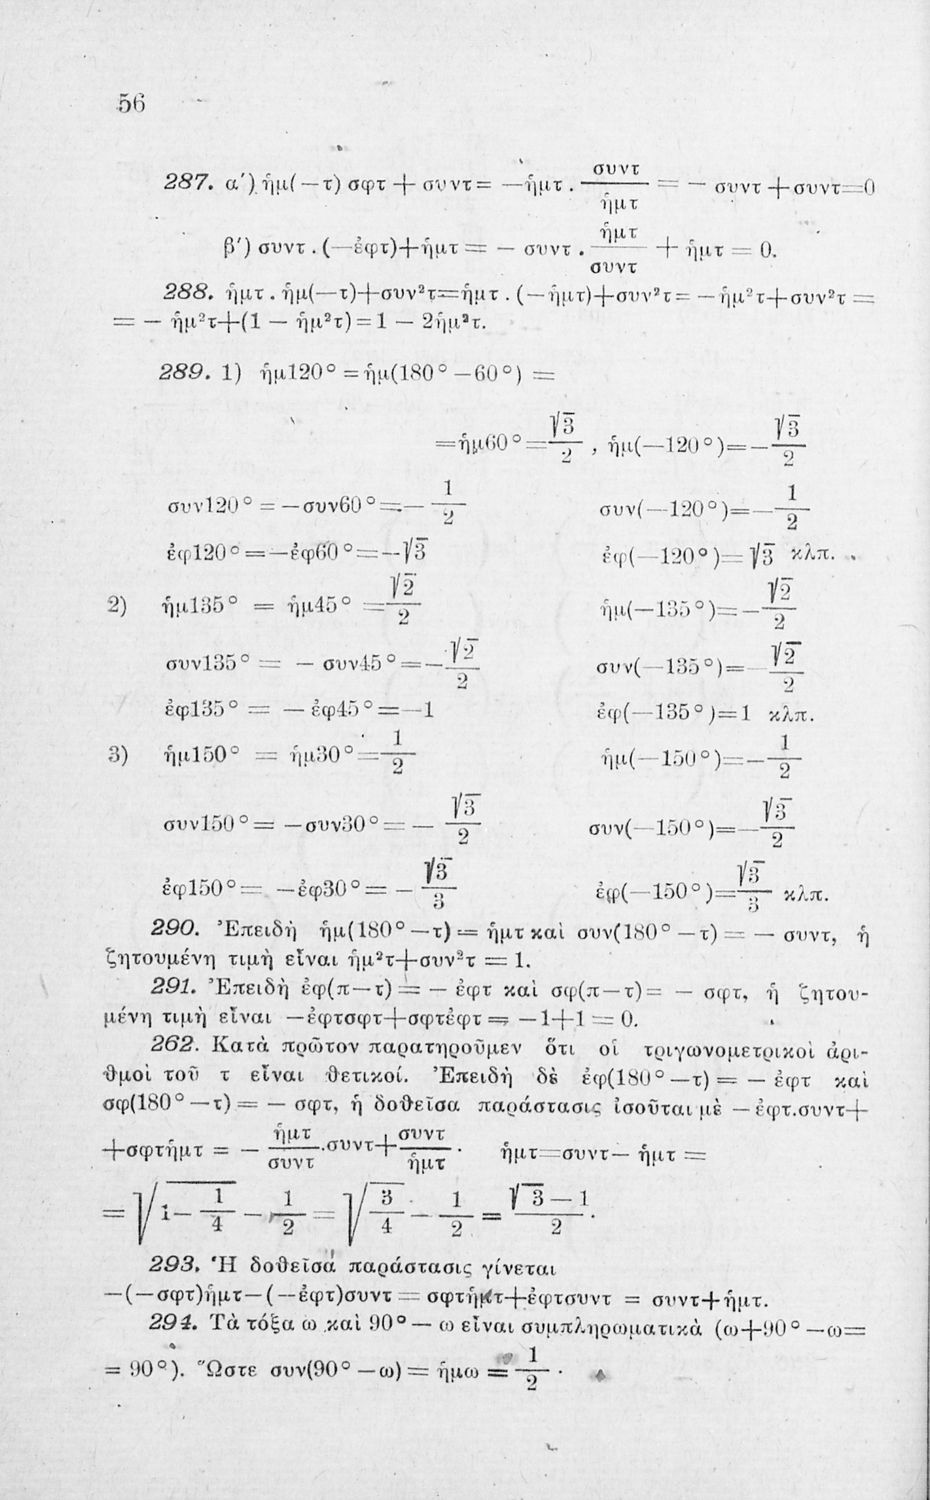 56
287. α') ἡμ(—τ) σφτ + συντ = —ἡμτ . συντ/ἡμτ = — συντ + συντ=0
β') συντ . (—ἐφτ)+ἡμτ = — συντ . ἡμτ/συντ + ἡμτ = 0.
288. ἡμτ . ἡμ(—τ)+συν²τ=ἡμτ . (—ἡμτ)+συν²τ= —ἡμ²τ+συν²τ =
= — ἡμ²τ+(1 — ἡμ²τ)=1 — 2ἡμ²τ.
289. 1) ἡμ120° =ἡμ(180° —60°) =
=ἡμ60°=√3/2 , ἡμ(—120°)=—√3/2
συν120° = —συν60°=— 1/2 συν(—120°)=—1/2
ἐφ120°=—ἐφ60°=—√3 ἐφ(—120°)=√3 κλπ.
2) ἡμ135° = ἡμ45° =√2/2 ἡμ(—135°)=—√2/2
συν135° = — συν45°=—√2/2 συν(—135°)=—√2/2
ἐφ135° = — ἐφ45°=—1 ἐφ(—135°)=1 κλπ.
3) ἡμ150° = ἡμ30°=1/2 ἡμ(—150°)=—1/2
συν150°= —συν30°= — √3/2 συν(—150°)=—√3/2
ἐφ150°= —ἐφ30°= — √3/3 ἐφ(—150°)=√3/3 κλπ.
290. Ἐπειδὴ ἡμ(180°—τ) = ἡμτ καὶ συν(180°—τ) = — συντ, ἡ
ζητουμένη τιμὴ εἶναι ἡμ²τ+συν²τ = 1.
291. Ἐπειδὴ ἐφ(π—τ) = — ἐφτ καὶ σφ(π—τ)= — σφτ, ἡ ζητου-
μένη τιμὴ εἶναι —ἐφτσφτ+σφτἐφτ = —1+1 = 0.
262. Κατὰ πρῶτον παρατηροῦμεν ὅτι οἱ τριγωνομετρικοὶ ἀρι-
θμοὶ τοῦ τ εἶναι θετικοί. Ἐπειδὴ δὲ ἐφ(180°—τ) = — ἐφτ καὶ
σφ(180°—τ) = — σφτ, ἡ δοθεῖσα παράστασις ἰσοῦται μὲ —ἐφτ.συντ+
+σφτἡμτ = — ἡμτ/συντ .συντ+ συντ/ἡμτ . ἡμτ=συντ— ἡμτ =
= √(1— 1/4) — 1/2 = √(3/4) — 1/2 = (√3—1)/2.
293. Ἡ δοθεῖσα παράστασις γίνεται
—(—σφτ)ἡμτ—(—ἐφτ)συντ = σφτἡμτ+ἐφτσυντ = συντ+ἡμτ.
294. Τὰ τόξα ω καὶ 90°— ω εἶναι συμπληρωματικὰ (ω+90°—ω=
= 90°). Ὥστε συν(90°—ω) = ἡμω = 1/2 .